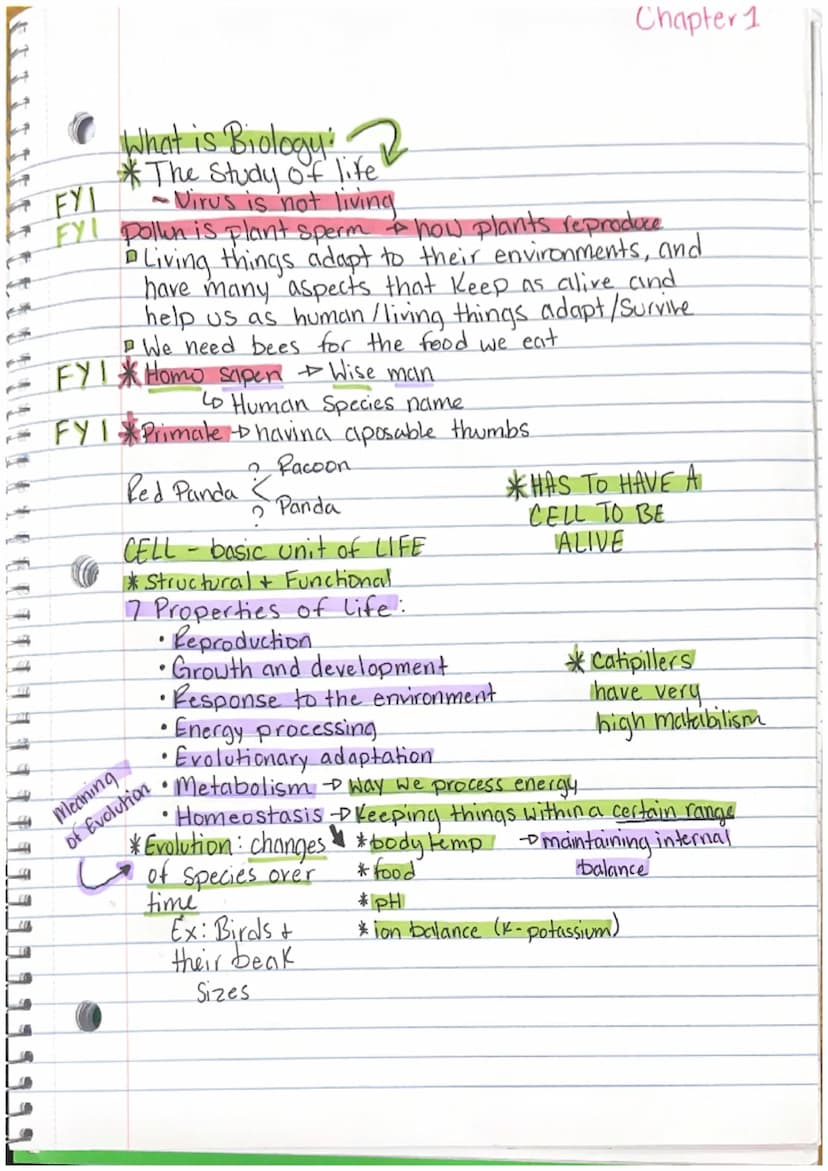 Chapter 1
What is Biology:
* The Study of life
FYI ~ Virus is not living
FYI pollen is plant sperm → how plants reproduce
Living things adapt to their environments, and
have many aspects that keep as alive and
help us as human/living things adapt/survive
We need bees for the food we eat
FYI * Homo sapen → Wise man
↳ Human Species name
FYI * Primate → having aposable thumbs
Red Panda < ? Racoon
? Panda
* HAS TO HAVE A
CELL TO BE
ALIVE
CELL - basic unit of LIFE
* Structural + Functional
7 Properties of Life:
• Reproduction
• Growth and development
• Response to the environment
• Energy processing
• Evolutionary adaptation
* Catipillers
have very
high matabilism
• Metabolism → Way we process energy
• Homeostasis → Keeping things within a certain range
→ maintaining internal
balance
* body temp
* food
* pH
* ion balance (K-potassium)
Meaning
of Evolution
* Evolution: changes
of species over
time
Ex: Birds +
their beak
Sizes